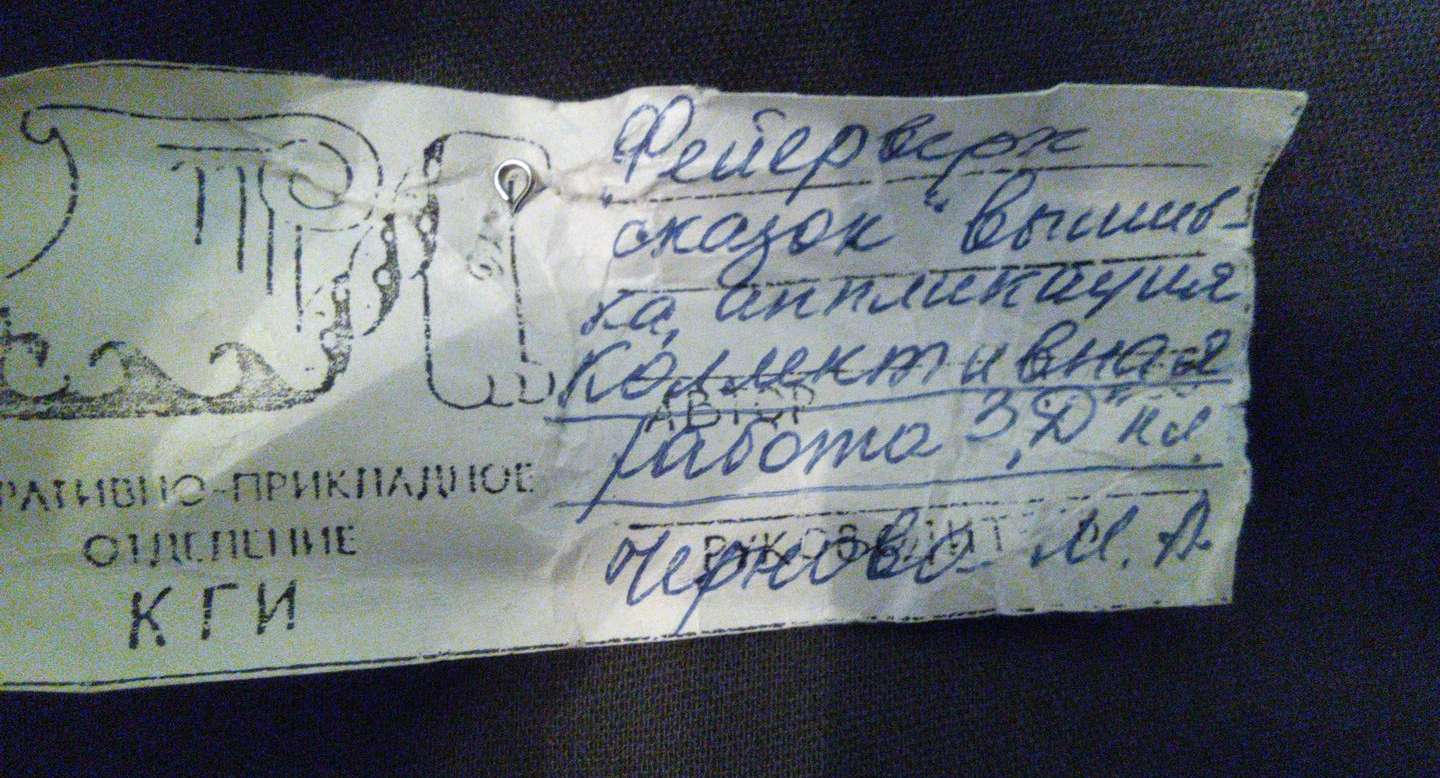 „Фейерверк
сказок“ вышив-
ка, аппликация
Коллективная
АВТОР
работа 3 „Д“ кл.
РУКОВОДИТ
Чернова М. А.
РАТИВНО-ПРИКЛАДНОЕ
ОТДЕЛЕНИЕ
КГИ